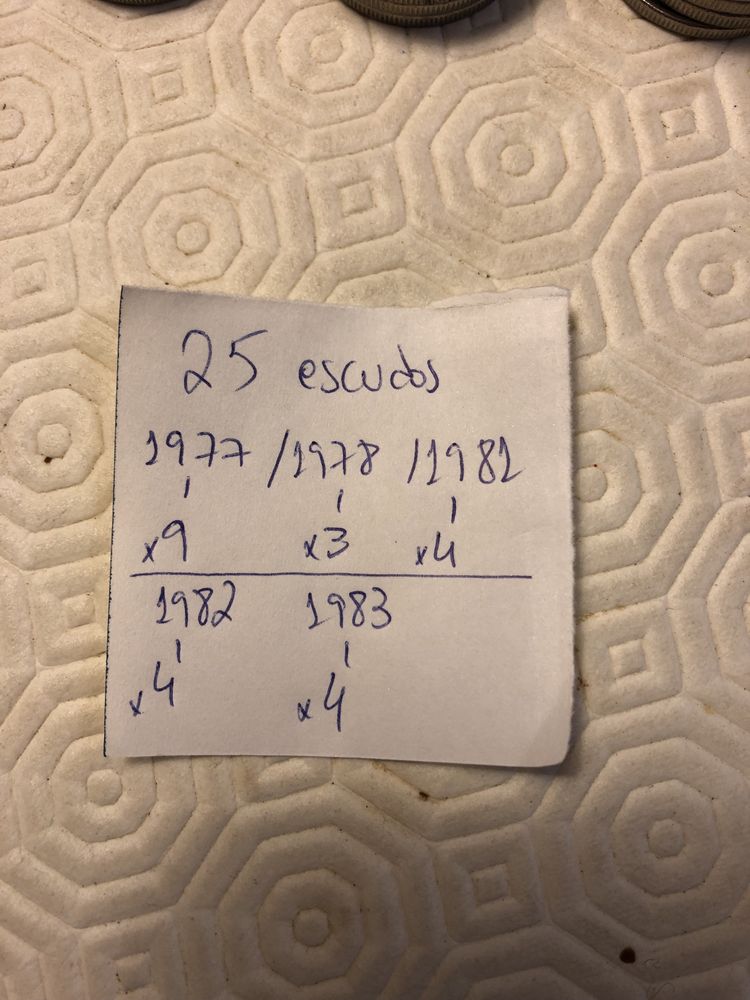 25 escudos
1977 /1978 /1981
x9 x3 x4
1982 1983
x4 x4